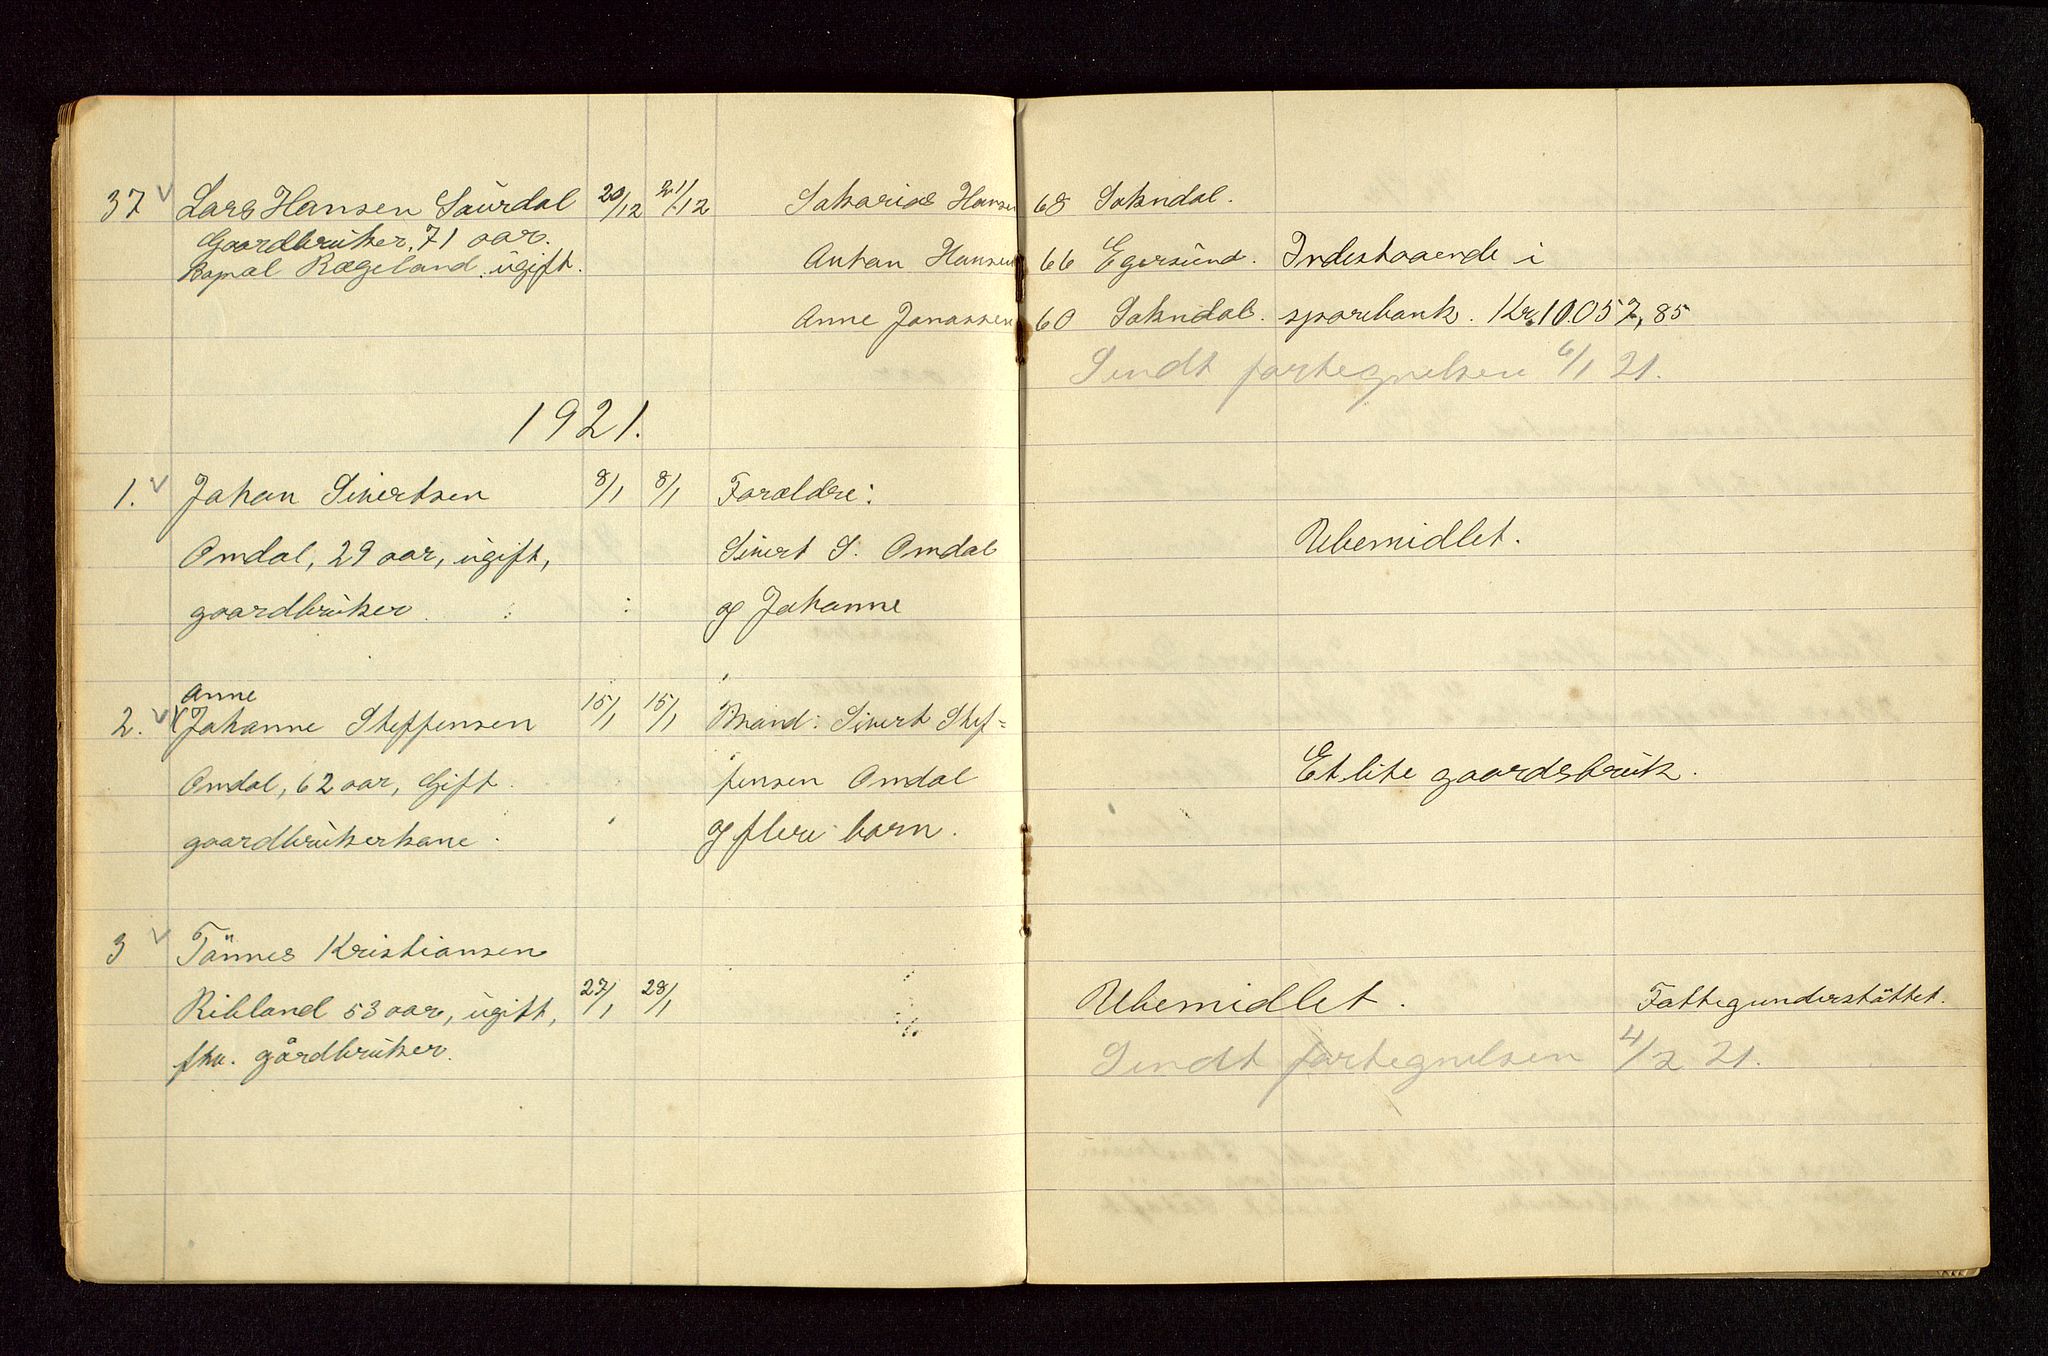 37 Lars Hansen Saurdal 20/12 21/12 Sakarias Hansen 68 Sokndal.
Gaardbruker, 71 aar.
Bopæl Rægeland. ugift.
Anton Hansen 66 Egersund. Indestaaende i
Anne Jonassen 60 Sokndal. sparebank. Kr. 10.057,85
Sendt fortegnelsen 6/1 21.
1921.
1. Johan Sivertsen 8/1 8/1 Forældre:
Omdal, 29 aar, ugift, Sivert S. Omdal Ubemidlet.
gaardbruker. og Johanne
Anne
2. Johanne Steffensen 15/1 15/1 Mand: Sivert Stef=
Omdal, 62 aar, Gift. fensen Omdal Et lite gaardsbruk.
gaardbrukerkone. og flere barn.
3 Tønnes Kristiansen
Ribland 53 aar, ugift, 27/1 28/1 Ubemidlet. Fattigunderstøttet.
fhv. gårdbruker. Sendt fortegnelsen 4/2 21.